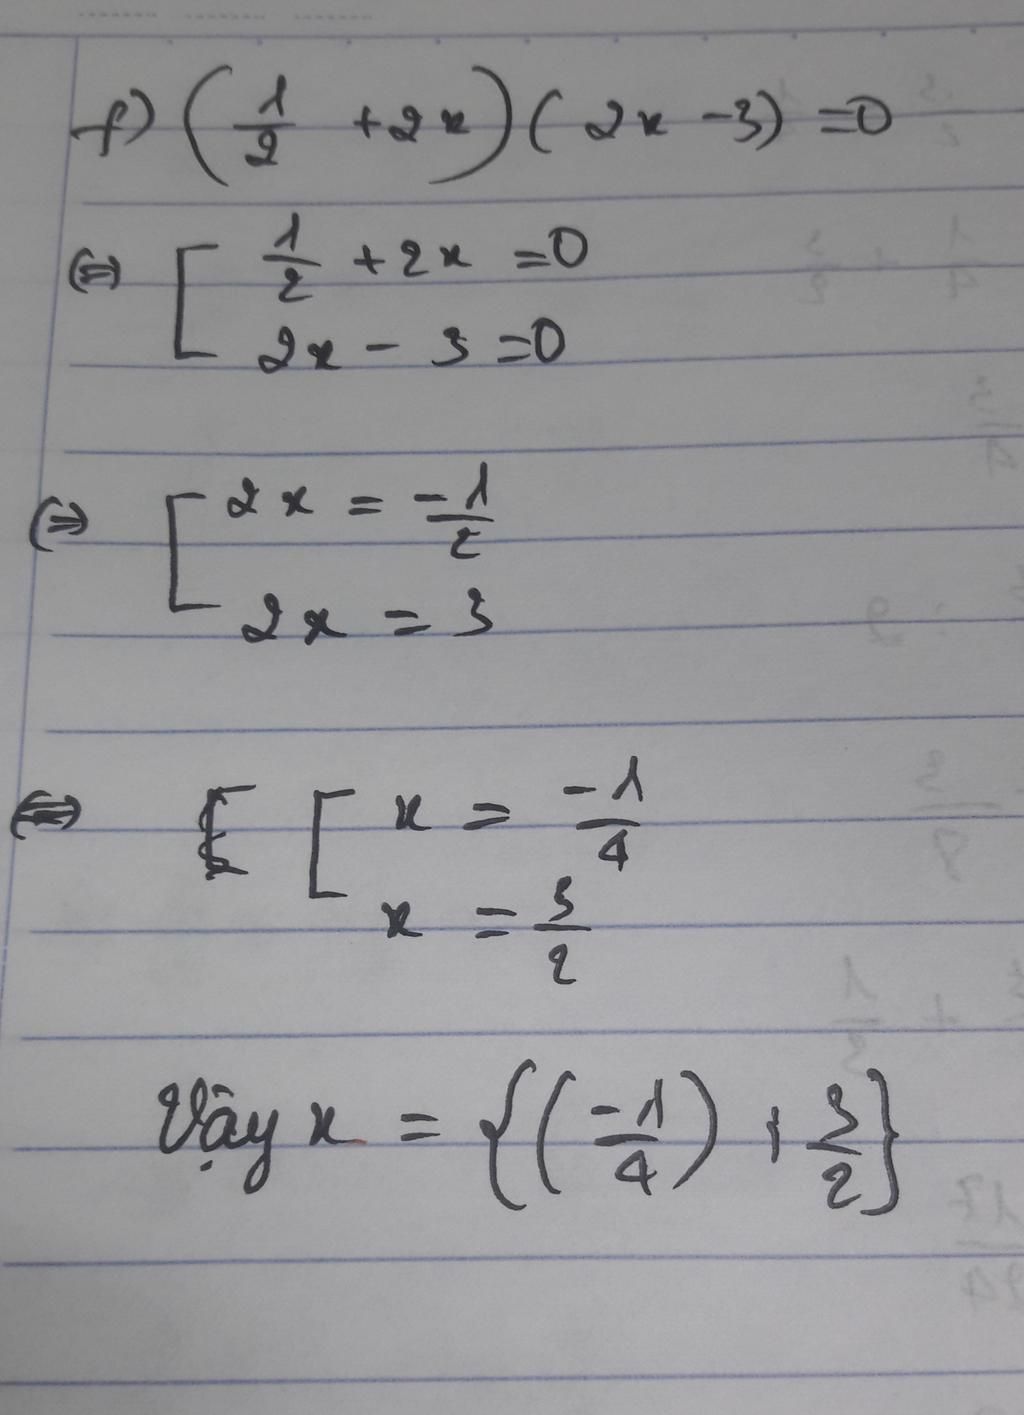 f) (1/2 + 2x)(2x - 3) = 0
(=) [ 1/2 + 2x = 0
2x - 3 = 0
(=) [ 2x = -1/2
2x = 3
(=) [ x = -1/4
x = 3/2
Vậy x = {(-1/4) ; 3/2}